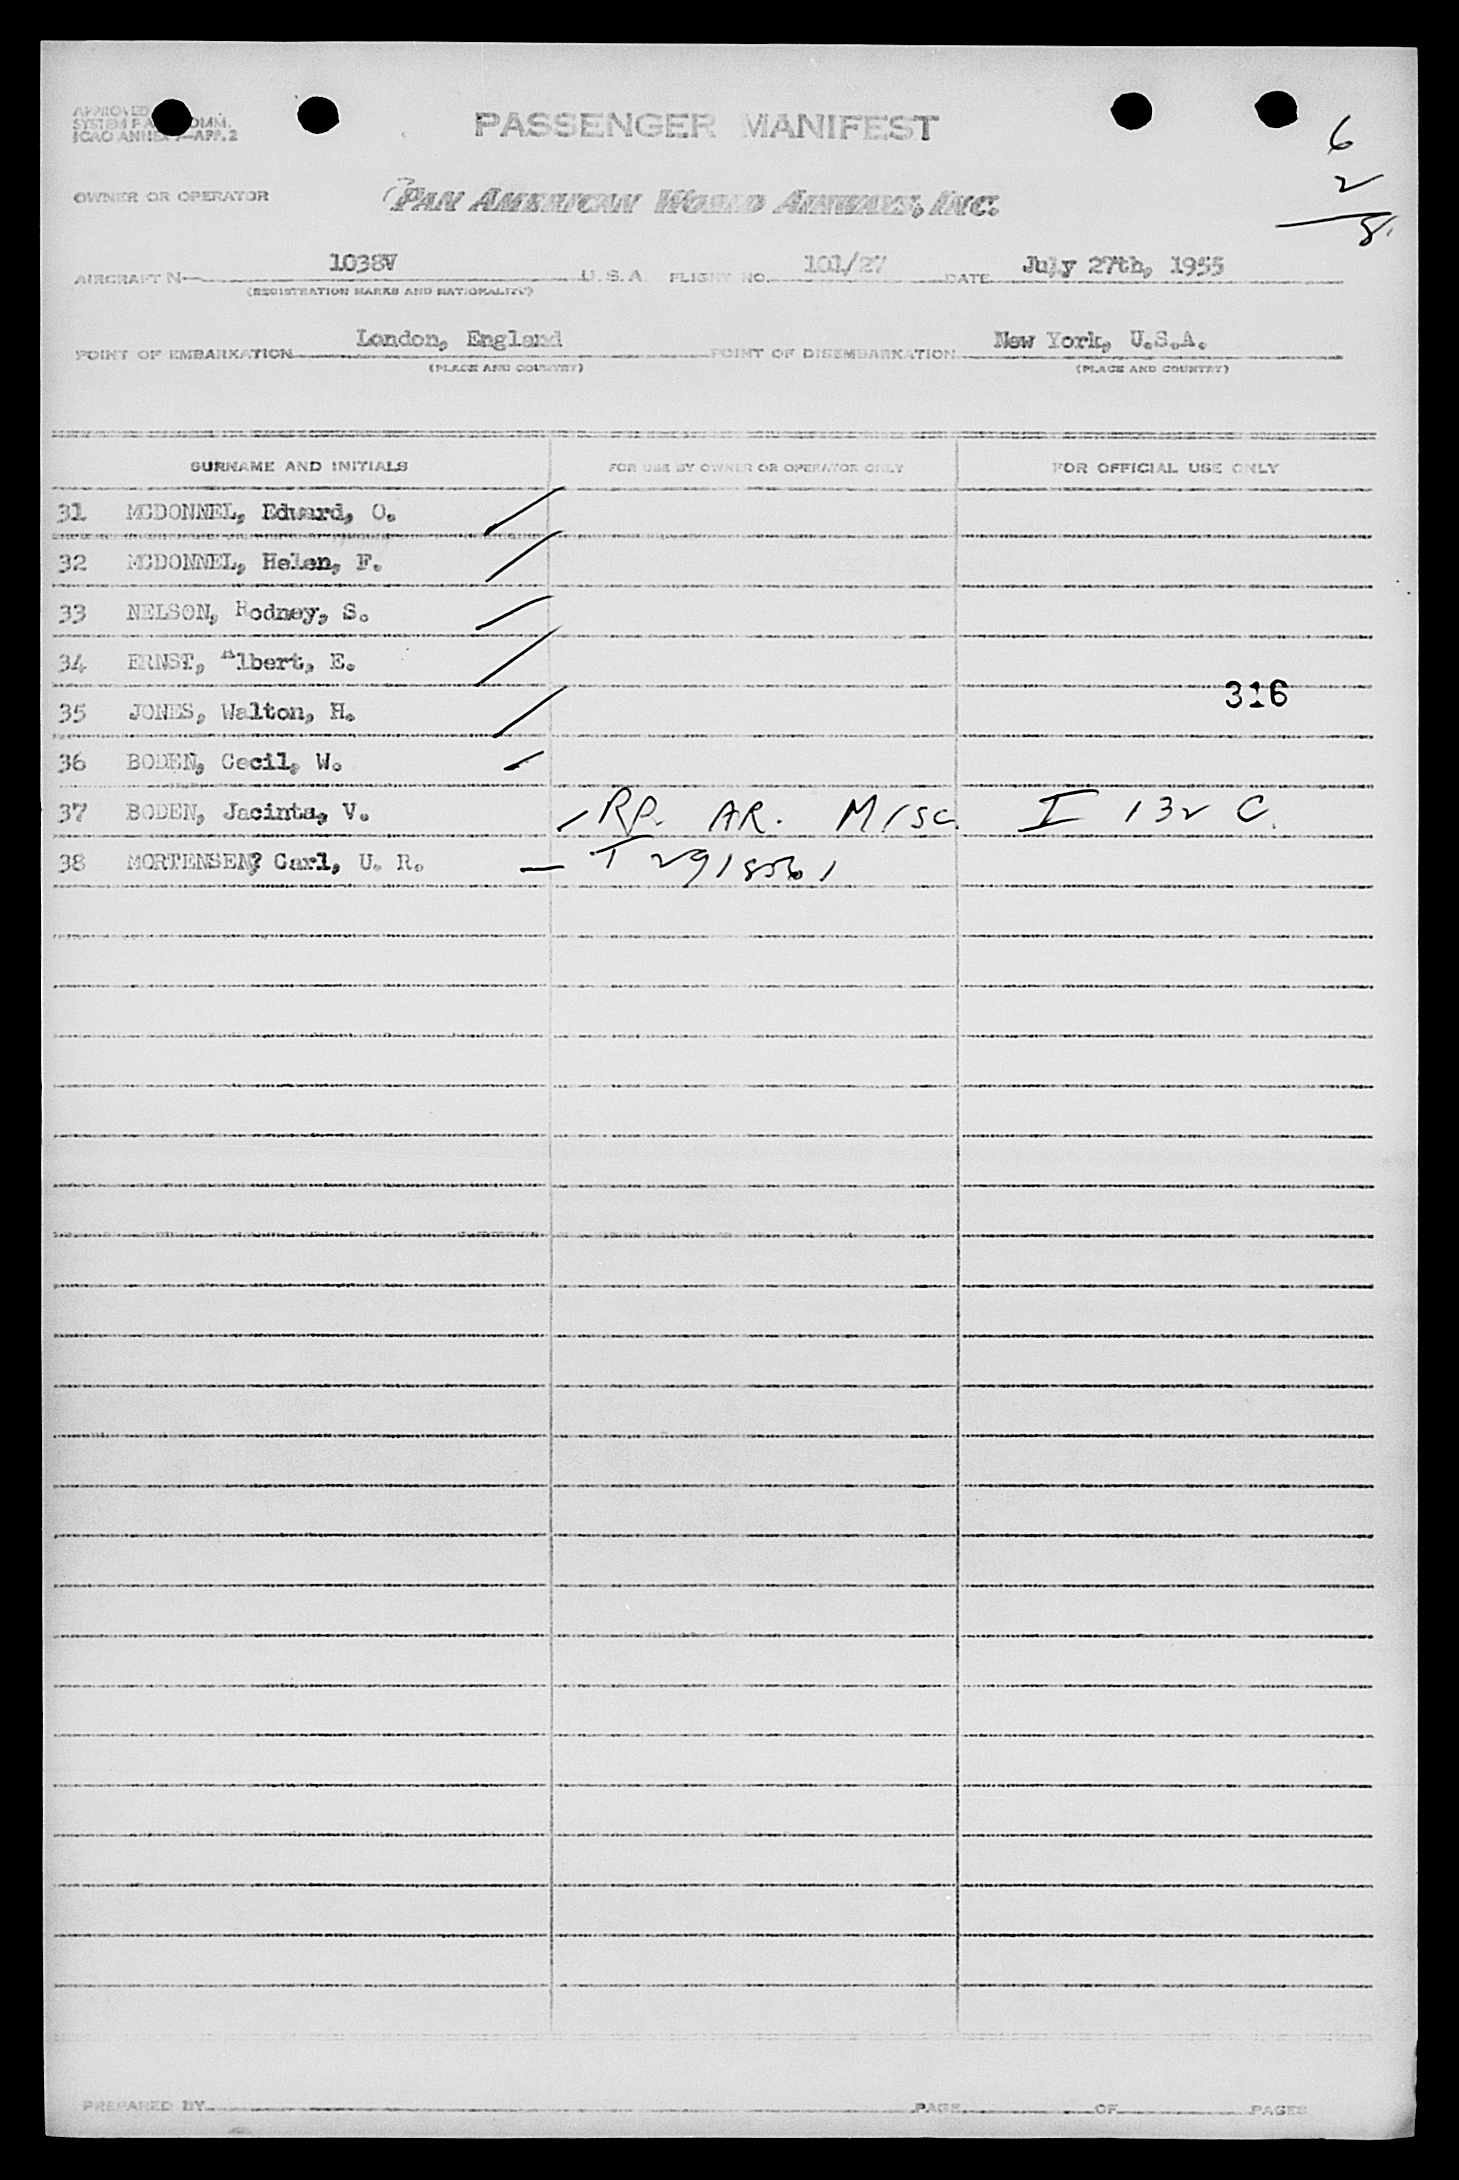 PASSENGER MANIFEST
6
2
8
OWNER OR OPERATOR PAN AMERICAN WORLD AIRWAYS, INC.
AIRCRAFT N- 1038V U.S.A. FLIGHT NO. 101/27 DATE July 27th, 1955
(REGISTRATION MARKS AND NATIONALITY)
POINT OF EMBARKATION London, England POINT OF DISEMBARKATION New York, U.S.A.
(PLACE AND COUNTRY) (PLACE AND COUNTRY)
SURNAME AND INITIALS FOR USE BY OWNER OR OPERATOR ONLY FOR OFFICIAL USE ONLY
31 MCDONNEL, Edward, O.
32 MCDONNEL, Helen, F.
33 NELSON, Rodney, S.
34 ERNST, Albert, E.
316
35 JONES, Walton, H.
36 BODEN, Cecil, W.
37 BODEN, Jacinta, V. RP. AR. MISC. I 132 C.
38 MORTENSEN? Carl, U. R.
PREPARED BY PAGE OF PAGES